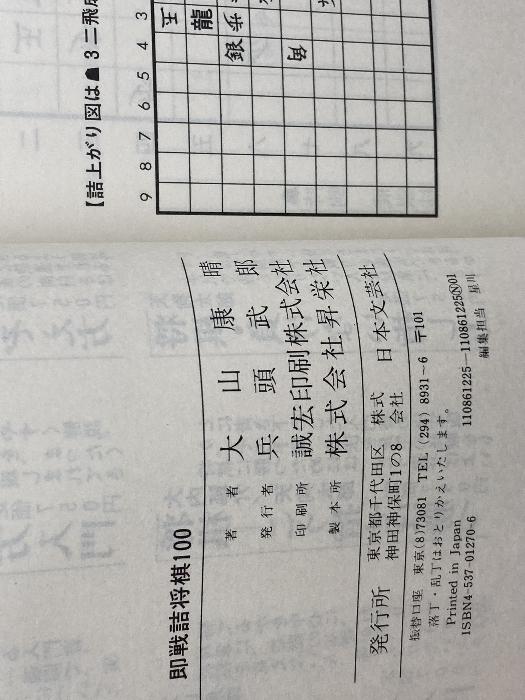 【詰上がり図は☗3二飛成
9 8 7 6 5 4 3
王
龍
銀 歩
角
即戦詰将棋100
著者 大山康晴
発行者 兵頭武郎
印刷所 誠宏印刷株式会社
製本所 株式会社昇栄社
発行所 東京都千代田区神田神保町1の8 株式会社 日本文芸社
振替口座 東京(8)73081 TEL (294) 8931~6 〒101
落丁・乱丁はおとりかえいたします。
Printed in Japan 110861225—110861225Ⓝ01
ISBN4-537-01270-6 編集担当 星川